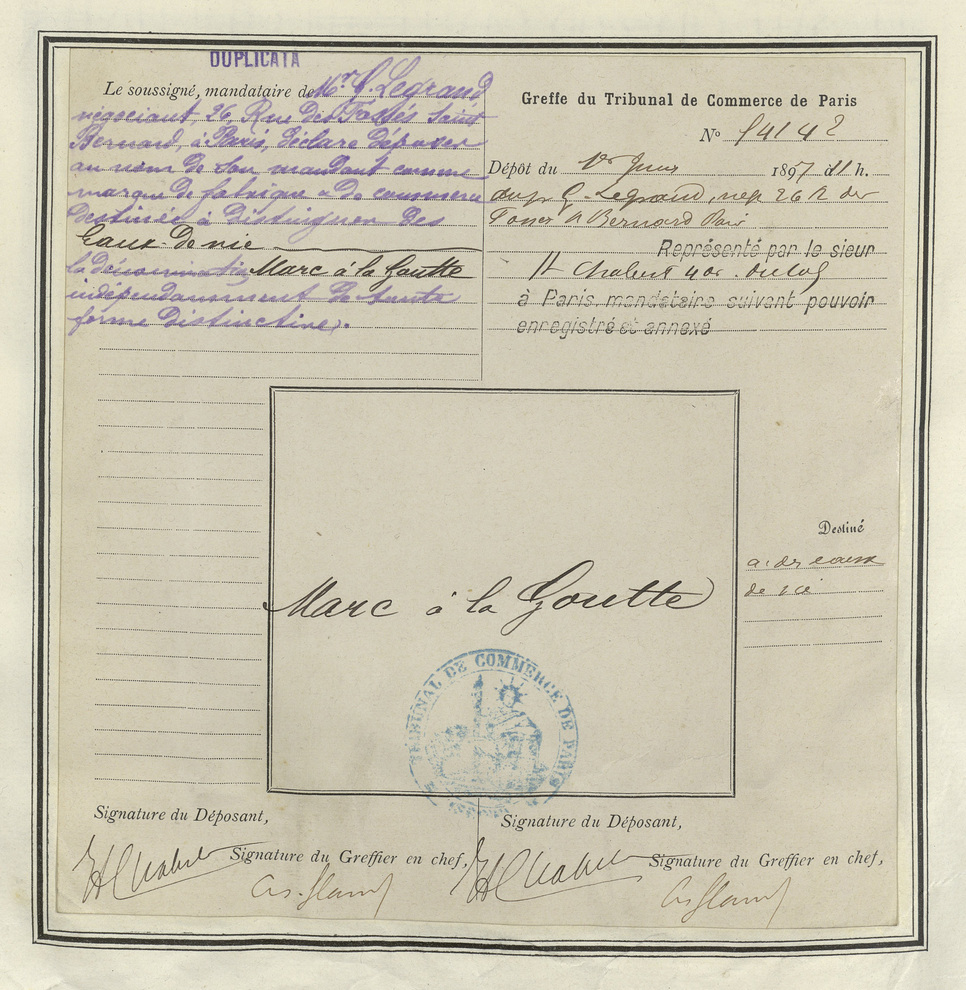 DUPLICATA
Le soussigné, mandataire de Mr Legrand
négociant, 26, Rue des Fossés Saint
Bernard, à Paris, déclare déposer
au nom de son mandant comme
marque de fabrique & de commerce
destinée à distinguer des
Eaux-de-vie
la dénomination Marc à la Goutte
indépendamment de toute
forme distinctive.
Greffe du Tribunal de Commerce de Paris
No 54142
Dépôt du 1er Juin 1897 11 h.
du sr Legrand, neg 26 R des
Fossés St Bernard Paris
Représenté par le sieur
Chabert
à Paris mandataire suivant pouvoir
enregistré et annexé
Marc à la Goutte
Destiné
à des eaux
de vie
TRIBUNAL DE COMMERCE DE PARIS
Signature du Déposant,
Signature du Greffier en chef,
Signature du Déposant,
Signature du Greffier en chef,